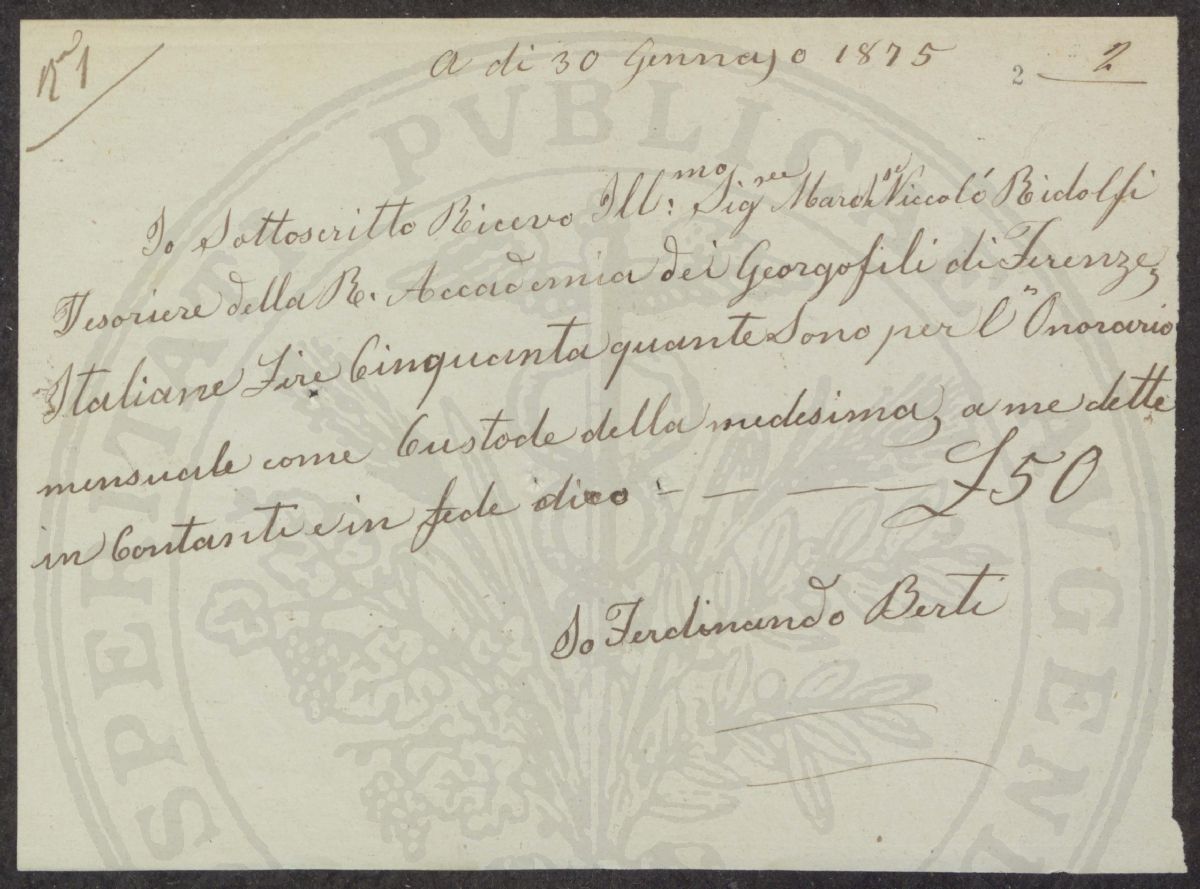 Nº 1
A di 30 Gennajo 1875
2 2
Io Sottoscritto Ricevo Ill:mo Sigre Marche Niccoló Ridolfi
Tesoriere della R. Accademia dei Georgofili di Firenze,
Italiane Lire Cinquanta quante Sono per l'Onorario
mensuale come Custode della medesima, a me dette
in Contanti e in fede dico - — — — £50
Io Ferdinando Berti
PVBLICAE
SPERITATI
AVGENDAE